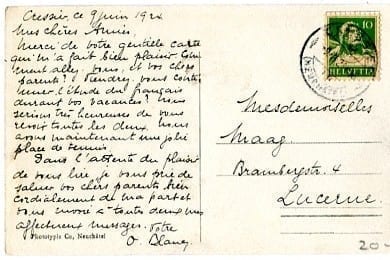 Cressier, ce 9 juin 1924
Mes chères Amies,
Merci de votre gentille carte
qui m'a fait bien plaisir. Com
ment allez-vous, et vos chers
parents? Viendrez-vous conti
nuer l'étude du français
durant vos vacances? Nous
serions très heureuses de vous
revoir toutes les deux. Nous
avons maintenant une jolie
place de tennis.
Dans l'attente du plaisir
de vous lire, je vous prie de
saluer vos chers parents bien
cordialement de ma part et
vous envoie à toutes deux mes
affectueux messages. Votre
O. Blanc
Phototypie Co, Neuchâtel
10
HELVETIA
Mesdemoiselles
Maag
Brambergstr. 4
Lucerne
20-